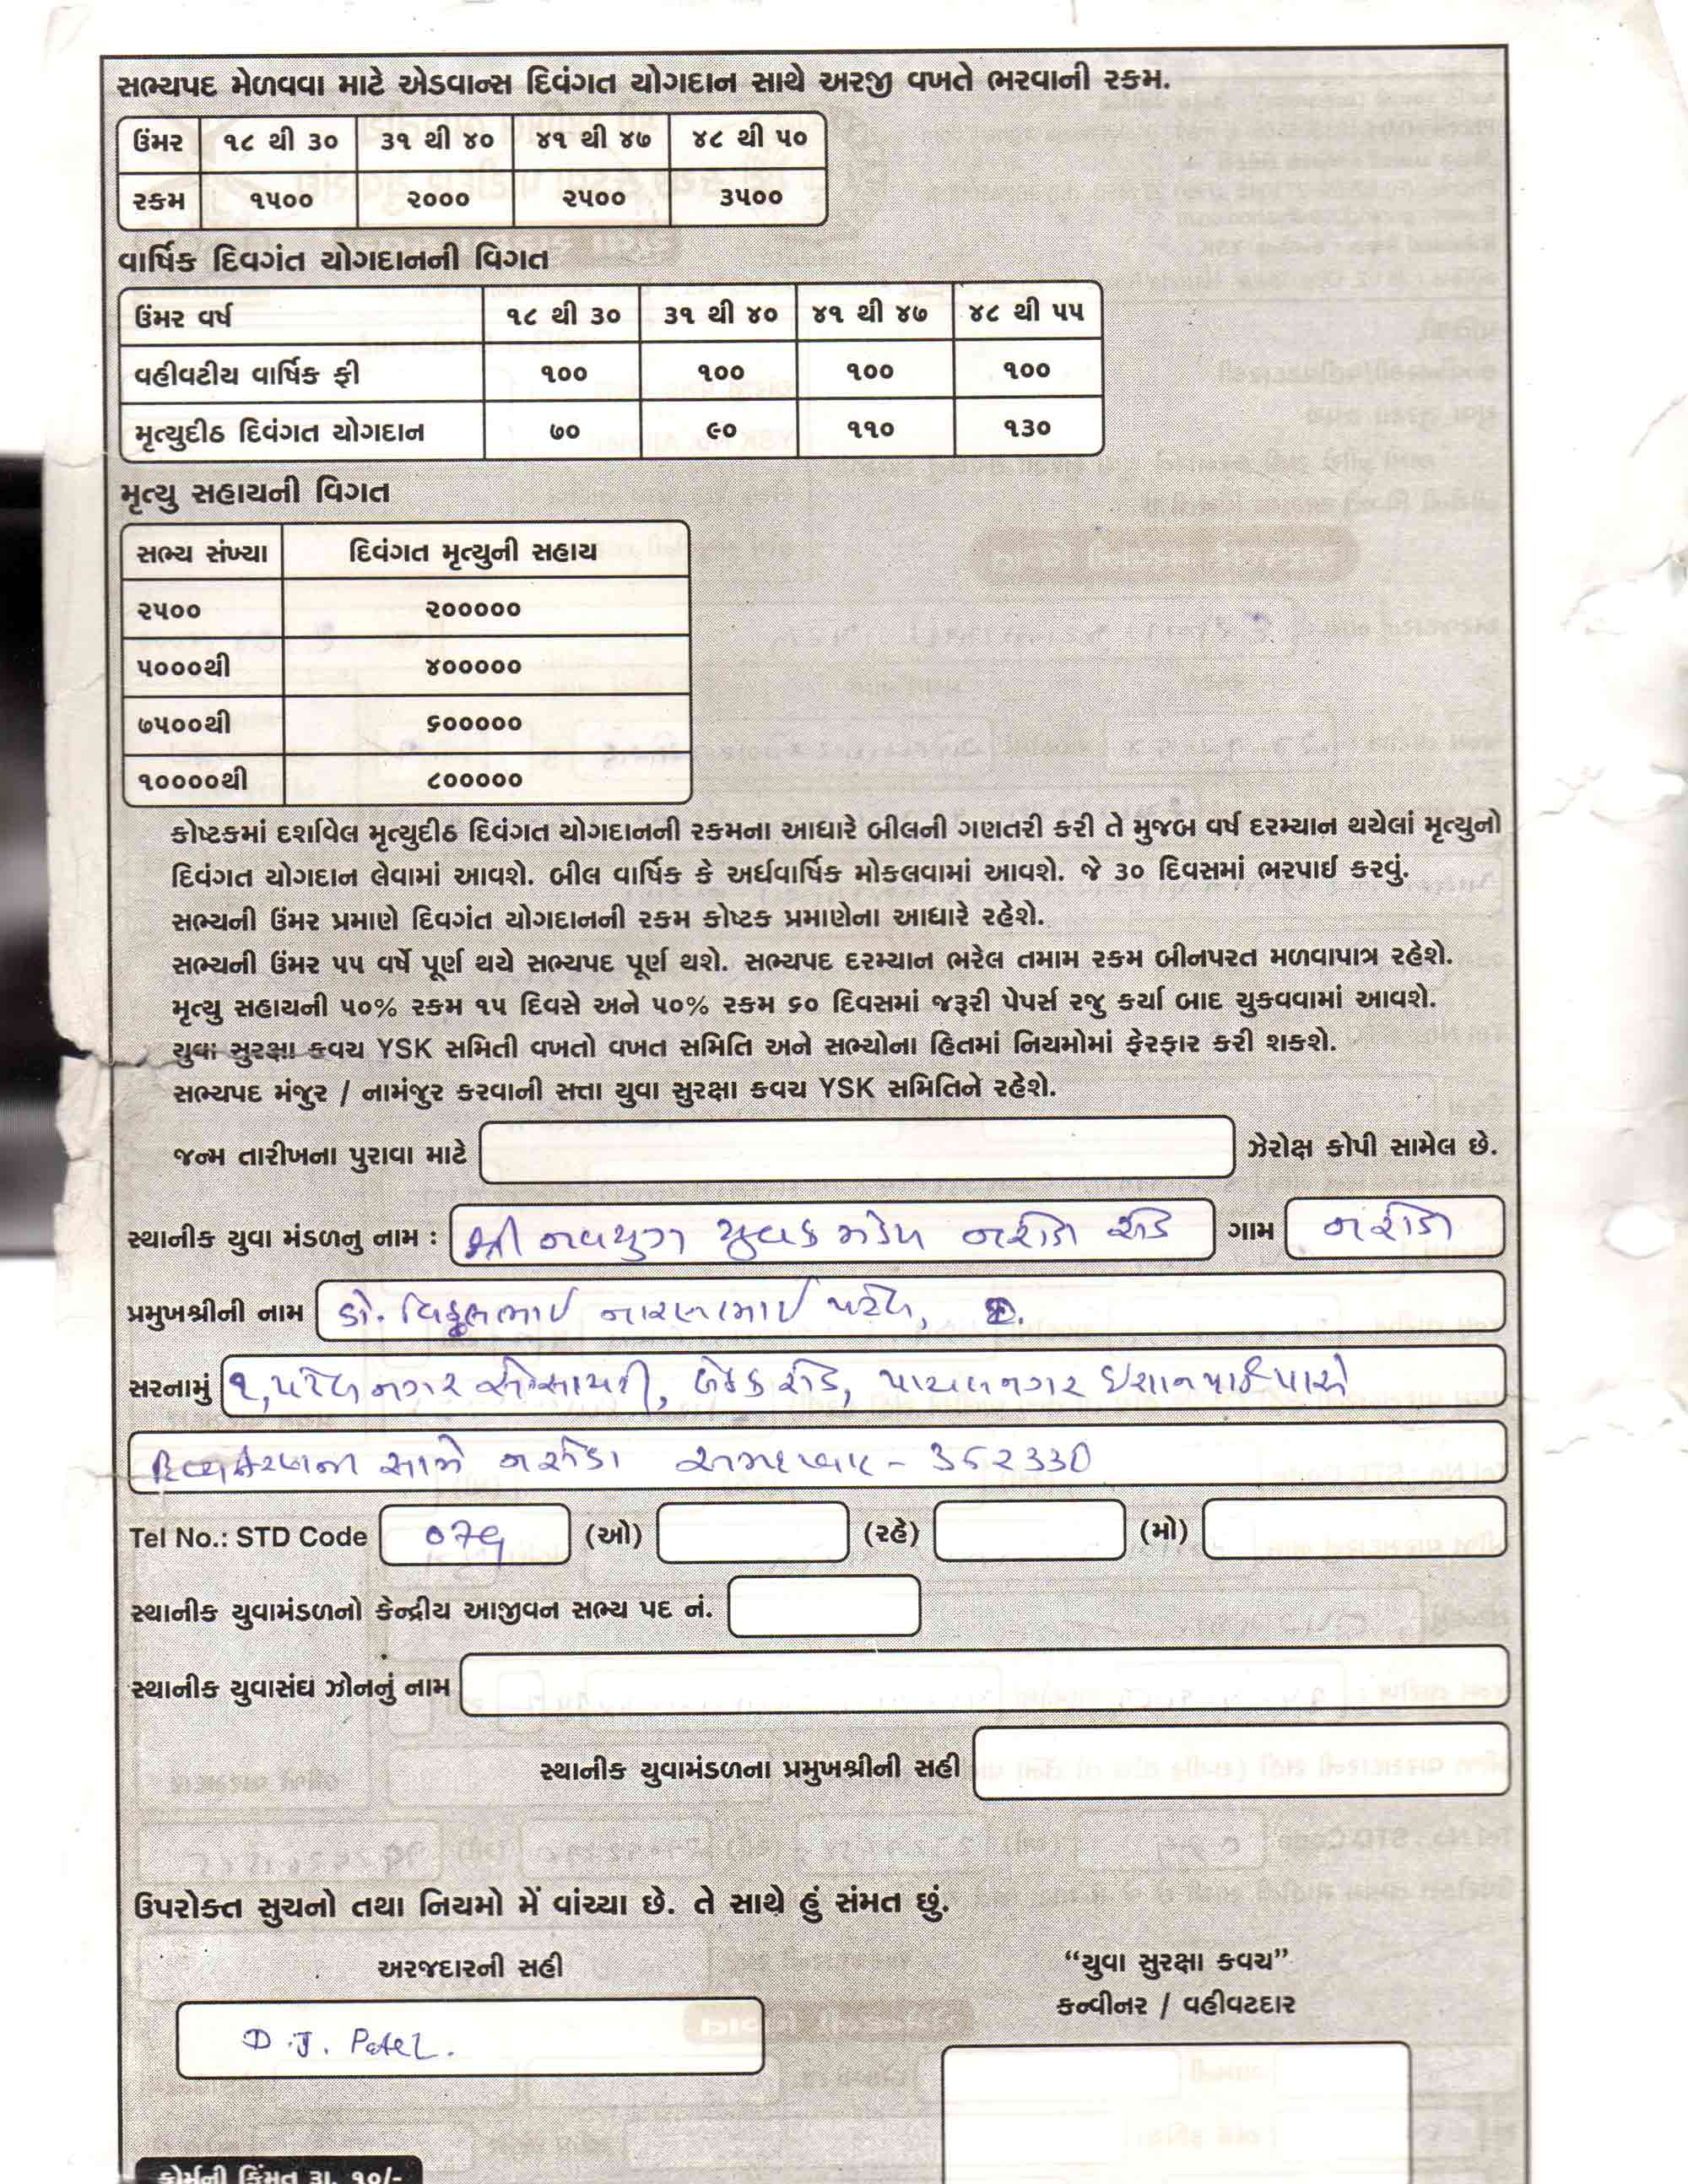 સભ્યપદ મેળવવા માટે એડવાન્સ દિવંગત યોગદાન સાથે અરજી વખતે ભરવાની રકમ.
ઉંમર ૧૮ થી ૩૦ ૩૧ થી ૪૦ ૪૧ થી ૪૭ ૪૮ થી ૫૦
રકમ ૧૫૦૦ ૨૦૦૦ ૨૫૦૦ ૩૫૦૦
વાર્ષિક દિવગંત યોગદાનની વિગત
ઉંમર વર્ષ ૧૮ થી ૩૦ ૩૧ થી ૪૦ ૪૧ થી ૪૭ ૪૮ થી ૫૫
વહીવટીય વાર્ષિક ફી ૧૦૦ ૧૦૦ ૧૦૦ ૧૦૦
મૃત્યુદીઠ દિવંગત યોગદાન ૭૦ ૯૦ ૧૧૦ ૧૩૦
મૃત્યુ સહાયની વિગત
સભ્ય સંખ્યા દિવંગત મૃત્યુની સહાય
૨૫૦૦ ૨૦૦૦૦૦
૫૦૦૦થી ૪૦૦૦૦૦
૭૫૦૦થી ૬૦૦૦૦૦
૧૦૦૦૦થી ૮૦૦૦૦૦
કોષ્ટકમાં દર્શાવેલ મૃત્યુદીઠ દિવંગત યોગદાનની રકમના આધારે બીલની ગણતરી કરી તે મુજબ વર્ષ દરમ્યાન થયેલાં મૃત્યુનો
દિવંગત યોગદાન લેવામાં આવશે. બીલ વાર્ષિક કે અર્ધવાર્ષિક મોકલવામાં આવશે. જે ૩૦ દિવસમાં ભરપાઈ કરવું.
સભ્યની ઉંમર પ્રમાણે દિવગંત યોગદાનની રકમ કોષ્ટક પ્રમાણેના આધારે રહેશે.
સભ્યની ઉંમર ૫૫ વર્ષે પૂર્ણ થયે સભ્યપદ પૂર્ણ થશે. સભ્યપદ દરમ્યાન ભરેલ તમામ રકમ બીનપરત મળવાપાત્ર રહેશે.
મૃત્યુ સહાયની ૫૦% રકમ ૧૫ દિવસે અને ૫૦% રકમ ૬૦ દિવસમાં જરૂરી પેપર્સ રજુ કર્યા બાદ ચુકવવામાં આવશે.
યુવા સુરક્ષા કવચ YSK સમિતી વખતો વખત સમિતિ અને સભ્યોના હિતમાં નિયમોમાં ફેરફાર કરી શકશે.
સભ્યપદ મંજુર / નામંજુર કરવાની સત્તા યુવા સુરક્ષા કવચ YSK સમિતિને રહેશે.
જન્મ તારીખના પુરાવા માટે ઝેરોક્ષ કોપી સામેલ છે.
સ્થાનીક યુવા મંડળનુ નામ : શ્રી નવયુગ યુવક મંડળ નરોડા રોડ ગામ નરોડા
પ્રમુખશ્રીની નામ ડૉ. વિઠ્ઠલભાઈ નારણભાઈ પટેલ,
સરનામું ૧, પટેલનગર સોસાયટી, બેઠક રોડ, પાયલનગર ઈશાનપાર્ક પાસે
સામે નરોડા અમદાવાદ - 382330
Tel No.: STD Code 079 (ઓ) (રહે) (મો)
સ્થાનીક યુવામંડળનો કેન્દ્રીય આજીવન સભ્ય પદ નં.
સ્થાનીક યુવાસંઘ ઝોનનું નામ
સ્થાનીક યુવામંડળના પ્રમુખશ્રીની સહી
ઉપરોક્ત સુચનો તથા નિયમો મેં વાંચ્યા છે. તે સાથે હું સંમત છું.
અરજદારની સહી
D.J. Patel.
“યુવા સુરક્ષા કવચ”
કન્વીનર / વહીવટદાર
ફોર્મની કિંમત રૂા. ૧૦/-